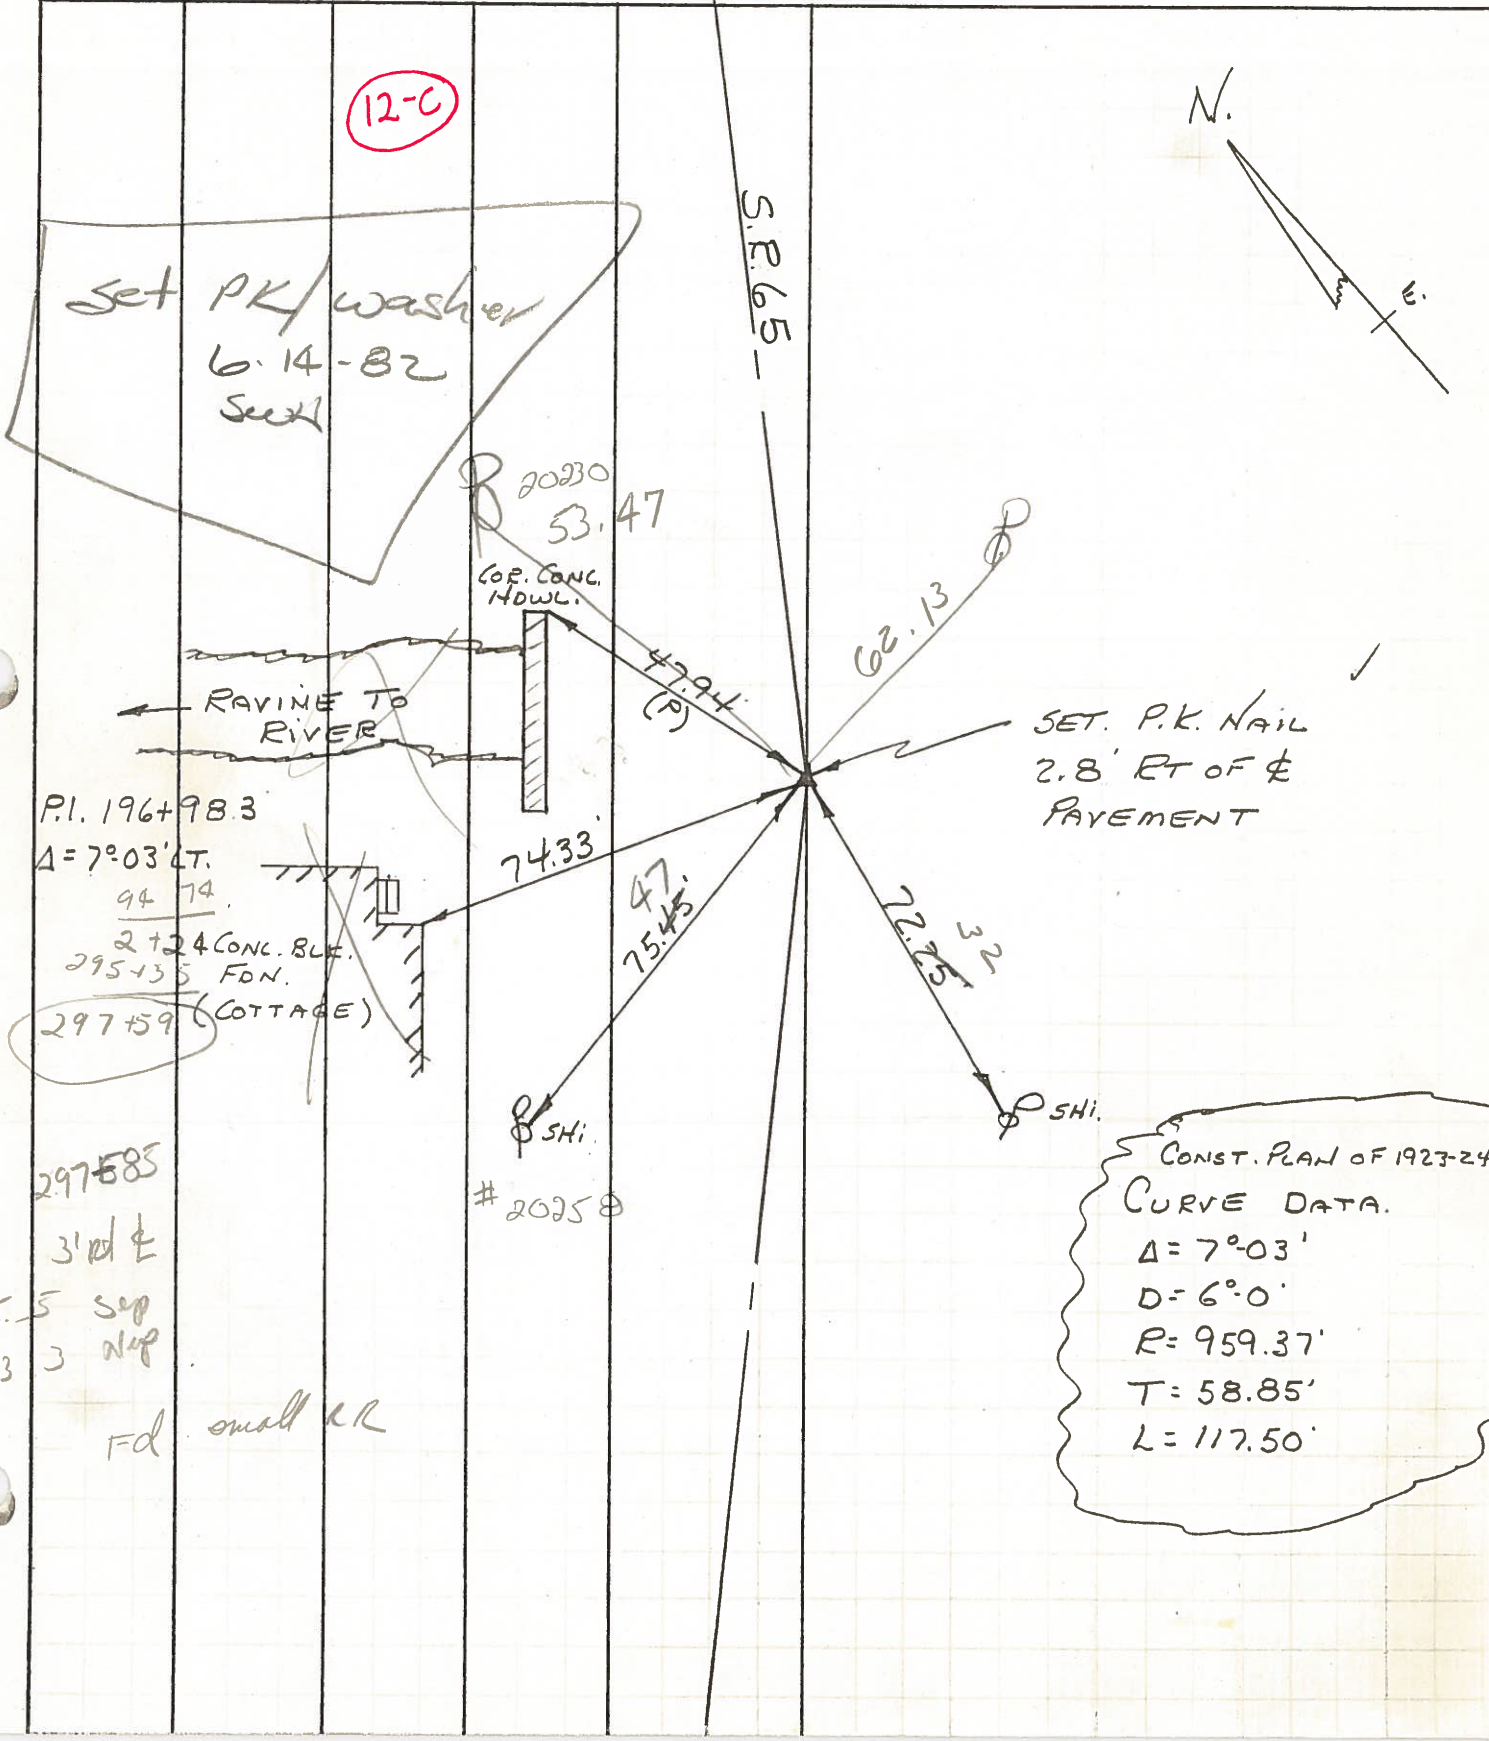 12-C
N.
E.
S.R. 65
Set PK/washer
6-14-82
20230
53.47
COR. CONC.
HDWL.
62.13
47.94
(R)
RAVINE TO
RIVER
SET. P.K. NAIL
2.8' RT OF ℄
PAVEMENT
P.I. 196+98.3
Δ= 7°-03' LT.
94 74
2+24
295+35
297+59
CONC. BLK.
FDN.
(COTTAGE)
74.33'
47.
75.45
72.25
32
SHI.
SHI.
# 20258
297+585
3' rd ℄
5 sep
3 3
Fd small RR
CONST. PLAN OF 1923-24
CURVE DATA.
Δ= 7°-03'
D= 6°-0'
R= 959.37'
T= 58.85'
L= 117.50'